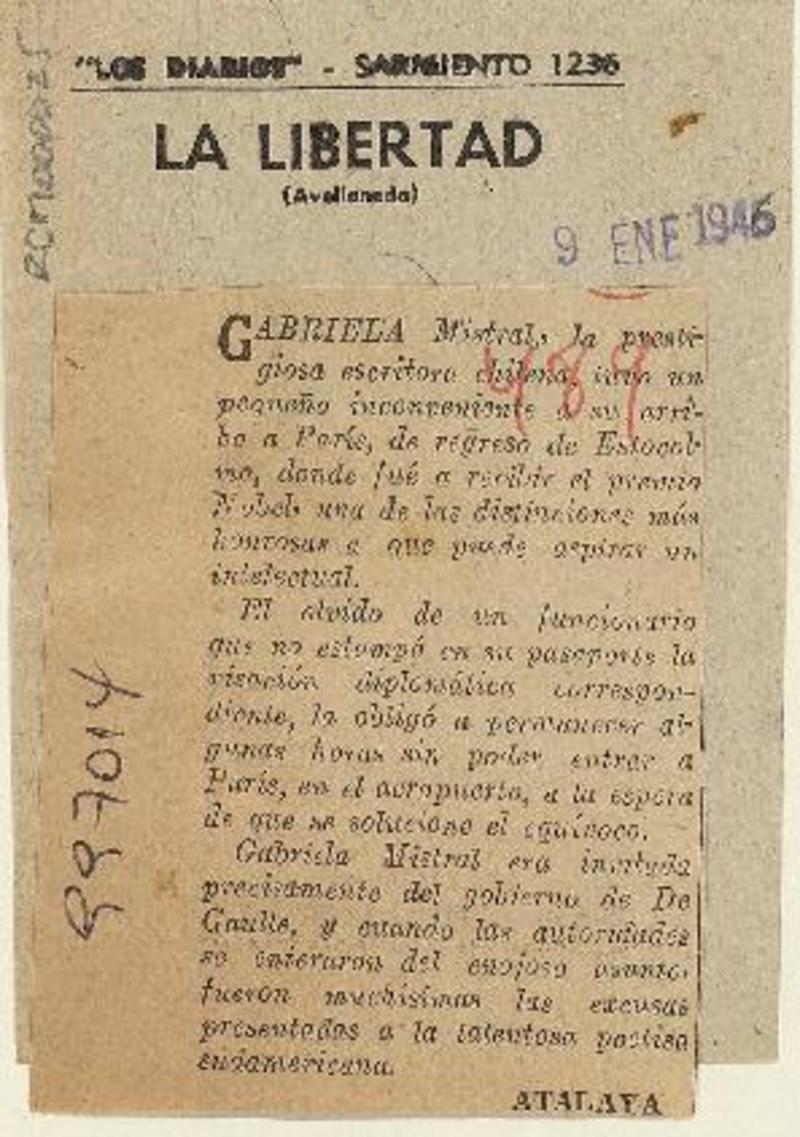 "LOS DIARIOS" - SARMIENTO 1236
LA LIBERTAD
(Avellaneda)
9 ENE 1946
489
GABRIELA Mistral, la presti-
giosa escritora chilena, tuvo un
pequeño inconveniente a su arri-
bo a París, de regreso de Estocol-
mo, donde fué a recibir el premio
Nobel, una de las distinciones más
honrosas a que puede aspirar un
intelectual.
El olvido de un funcionario
que no estampó en su pasaporte la
visación diplomática correspon-
diente, la obligó a permanecer al-
gunas horas sin poder entrar a
París, en el aeropuerto, a la espera
de que se solucione el equívoco.
Gabriela Mistral era invitada
precisamente del gobierno de De
Gaulle, y cuando las autoridades
se enteraron del enojoso asunto,
fueron muchísimas las excusas
presentadas a la talentosa poetisa
sudamericana.
ATALAYA